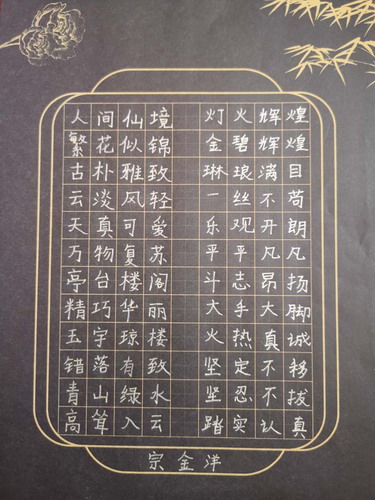 人间仙境 灯火辉煌
繁花似锦 金碧辉煌
古朴雅致 琳琅满目
云淡风轻 一丝不苟
天真可爱 乐观开朗
万物复苏 平平凡凡
亭台楼阁 斗志昂扬
精巧华丽 大手大脚
玉宇琼楼 火热真诚
错落有致 坚定不移
青山绿水 坚忍不拔
高耸入云 踏实认真
宗金洋